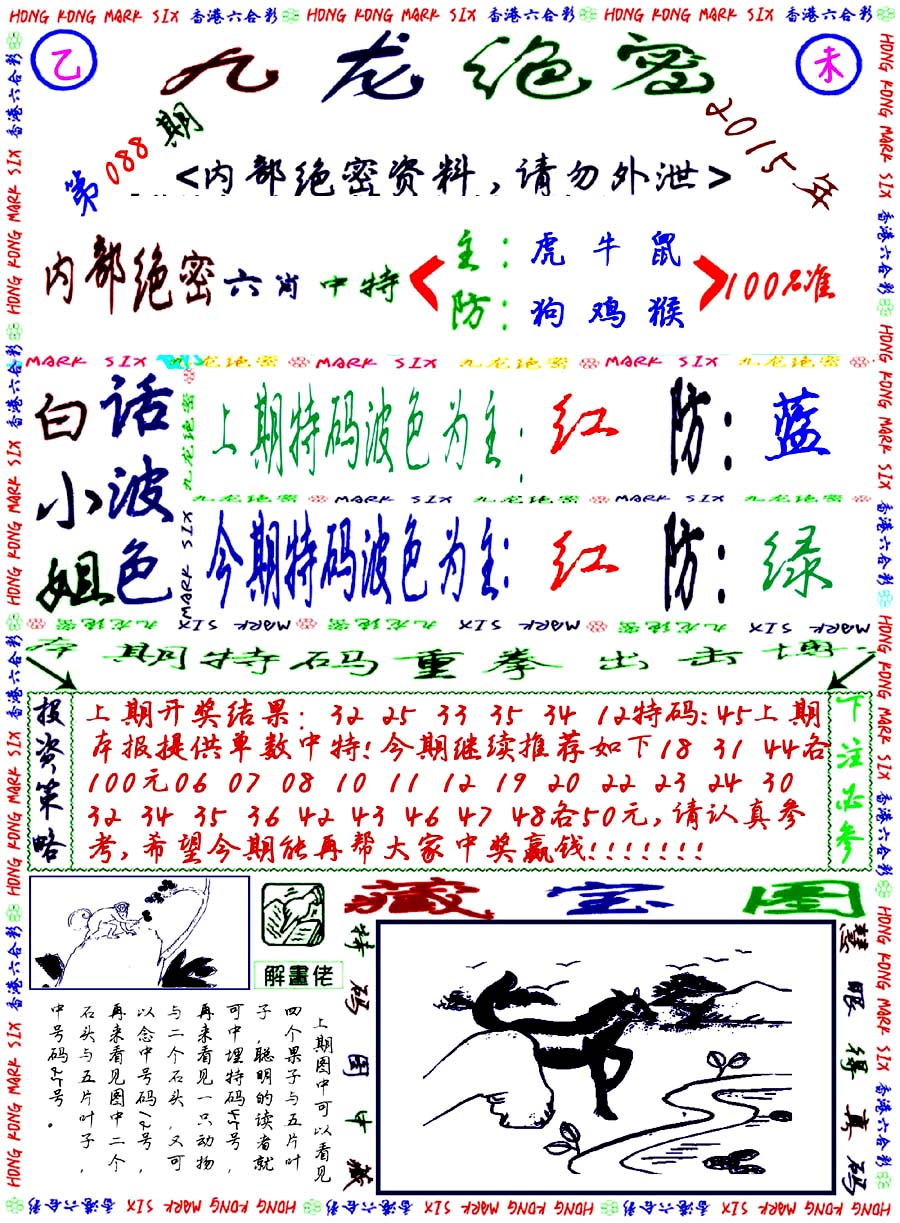 HONG KONG MARK SIX 香港六合彩 HONG KONG MARK SIX 香港六合彩 HONG KONG MARK SIX 香港六合彩
乙 九龙绝密 未
第088期
2015年
<内部绝密资料,请勿外泄>
内部绝密六肖中特
主:虎牛鼠
防:狗鸡猴
100%准
MARK SIX 九龙绝密 MARK SIX 九龙绝密 MARK SIX 九龙绝密
白话小波姐色
上期特码波色为主:红 防:蓝
九龙绝密 MARK SIX 九龙绝密 MARK SIX 九龙绝密
今期特码波色为主:红 防:绿
九龙绝密 MARK SIX 九龙绝密 MARK SIX 九龙绝密 MARK SIX
本期特码重拳出击博
投资策略
上期开奖结果:32 25 33 35 34 12特码:45上期
本报提供单数中特!今期继续推荐如下18 31 44各
100元06 07 08 10 11 12 19 20 22 23 24 30
32 34 35 36 42 43 46 47 48各50元,请认真参
考,希望今期能再帮大家中奖赢钱!!!!!!!
下注必参
解畫佬
藏宝图
特码图中藏
慧眼得真码
上期图中可以看见
四个果子与五片叶
子,聪明的读者就
可中埋特码45号,
再来看见一只动物
与二个石头,又可
以念中号码12号,
再来看见图中二个
石头与五片叶子,
中号码25号。
HONG KONG MARK SIX 香港六合彩 HONG KONG MARK SIX 香港六合彩 HONG KONG MARK SIX 香港六合彩